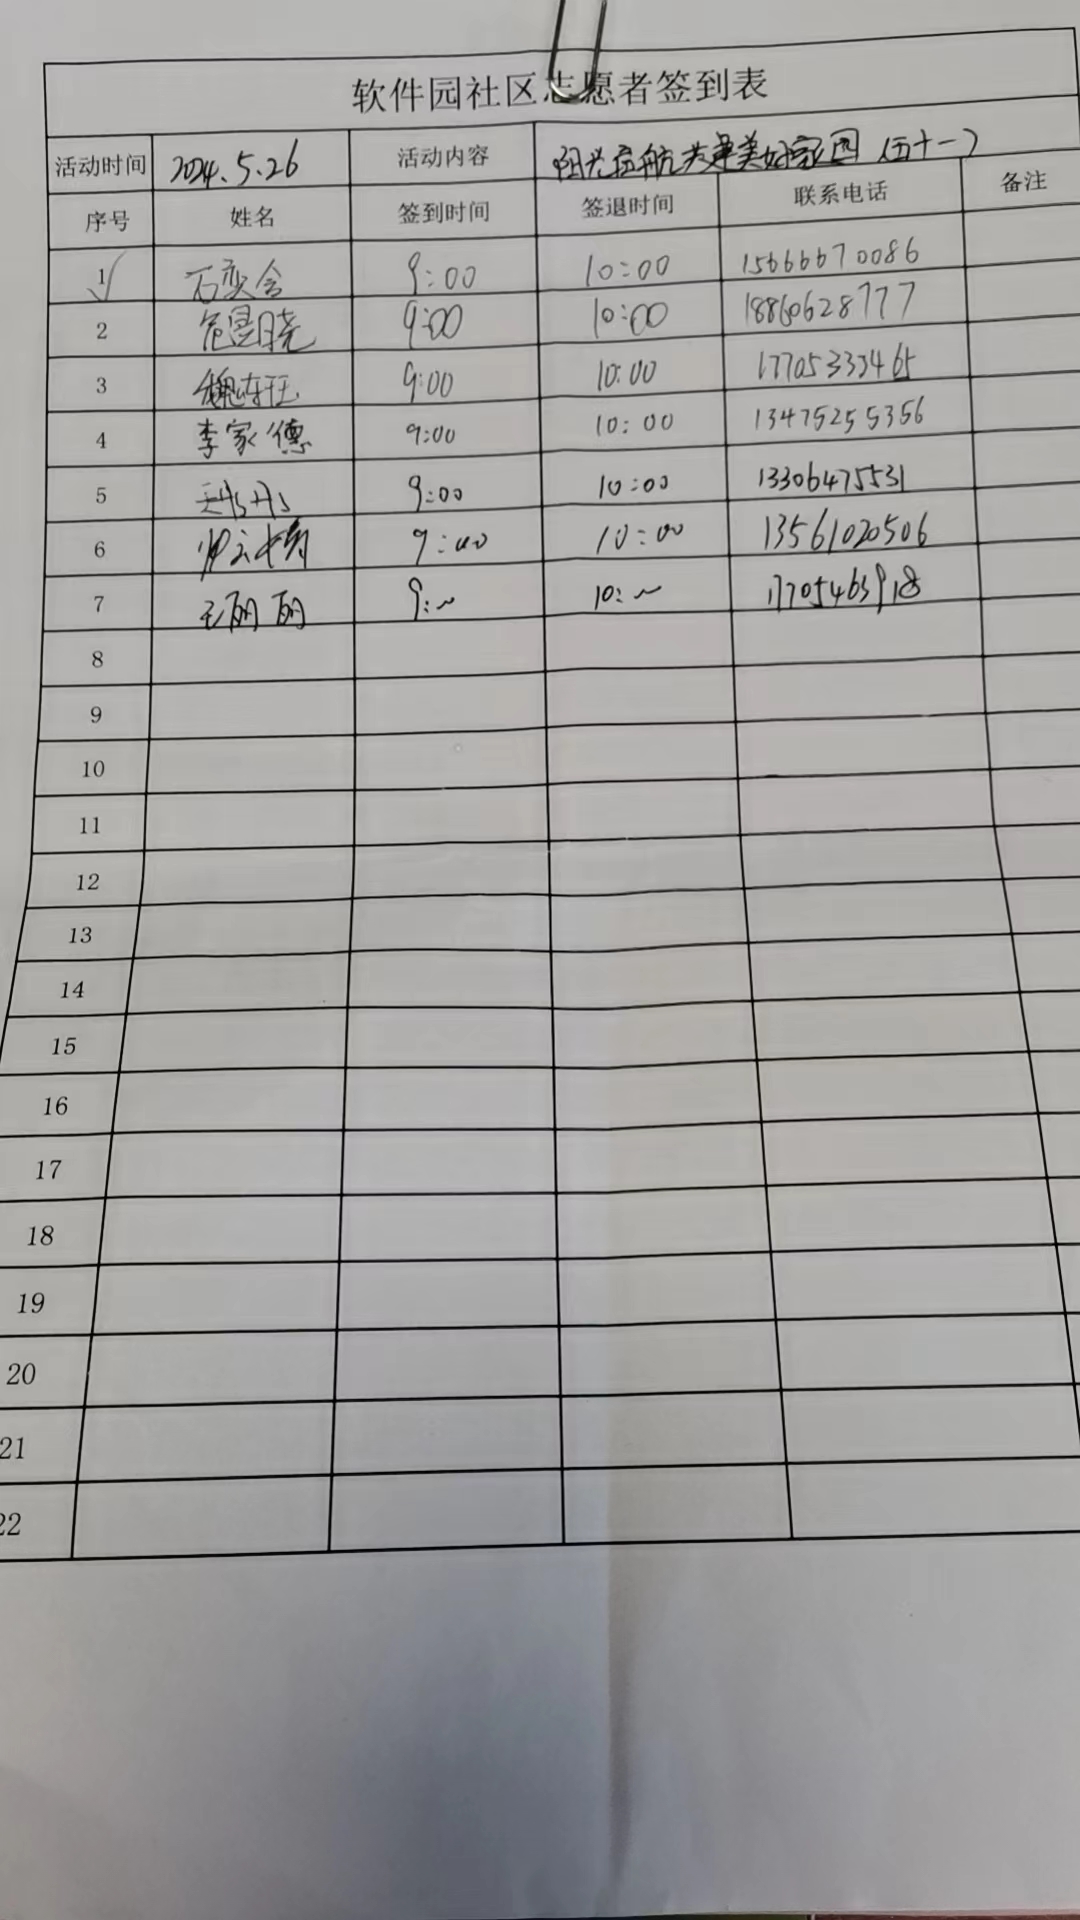 软件园社区志愿者签到表
活动时间 2024.5.26 活动内容 阳光启航共建美好家园（五十一）
序号 姓名 签到时间 签退时间 联系电话 备注
1 石奕会 9:00 10:00 15666670086
2 9:00 10:00 18860628777
3 魏东旺 9:00 10:00 17705333465
4 李家德 9:00 10:00 13475255356
5 9:00 10:00 13306475531
6 9:00 10:00 13561020506
7 王丽丽 9:~ 10:~ 17705463918
8
9
10
11
12
13
14
15
16
17
18
19
20
21
22